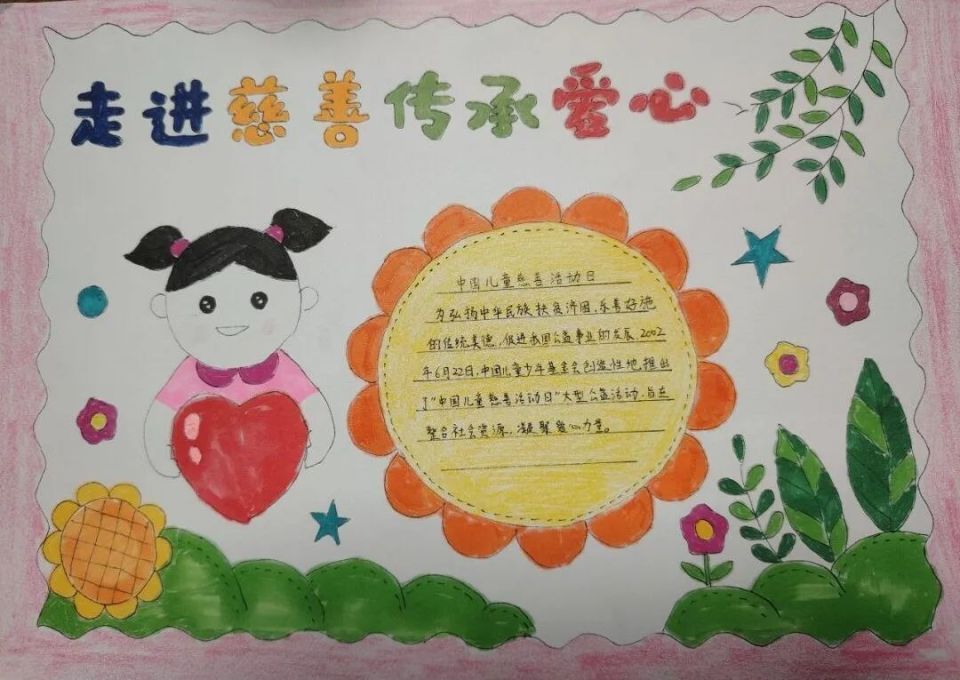 走进慈善传承爱心
中国儿童慈善活动日
为弘扬中华民族扶贫济困、乐善好施
的传统美德,促进我国公益事业的发展,2002
年6月22日,中国儿童少年基金会创造性地推出
了“中国儿童慈善活动日”大型公益活动,旨在
整合社会资源,凝聚爱心力量。